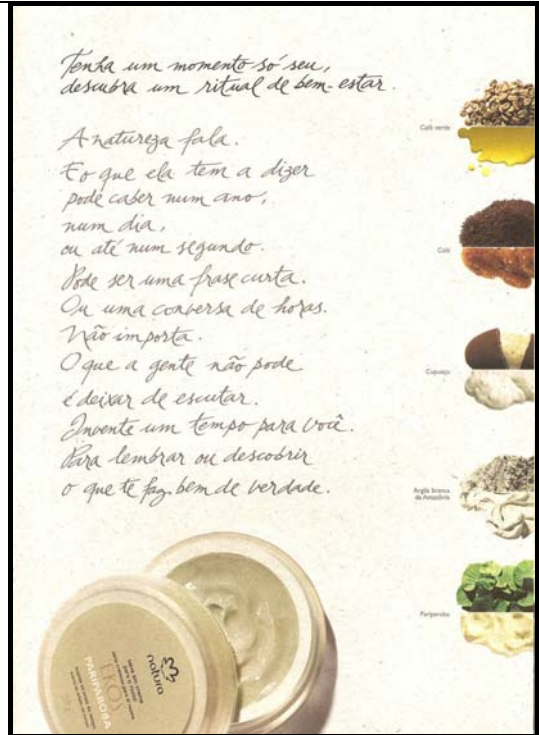 Tenha um momento só seu,
descubra um ritual de bem-estar.
A natureza fala.
E o que ela tem a dizer
pode caber num ano,
num dia,
ou até num segundo.
Pode ser uma frase curta.
Ou uma conversa de horas.
Não importa.
O que a gente não pode
é deixar de escutar.
Invente um tempo para você.
Para lembrar ou descobrir
o que te faz bem de verdade.
Café verde
Café
Cupuaçu
Argila branca
da Amazônia
Pariparoba
natura
EKOS
PARIPAROBA